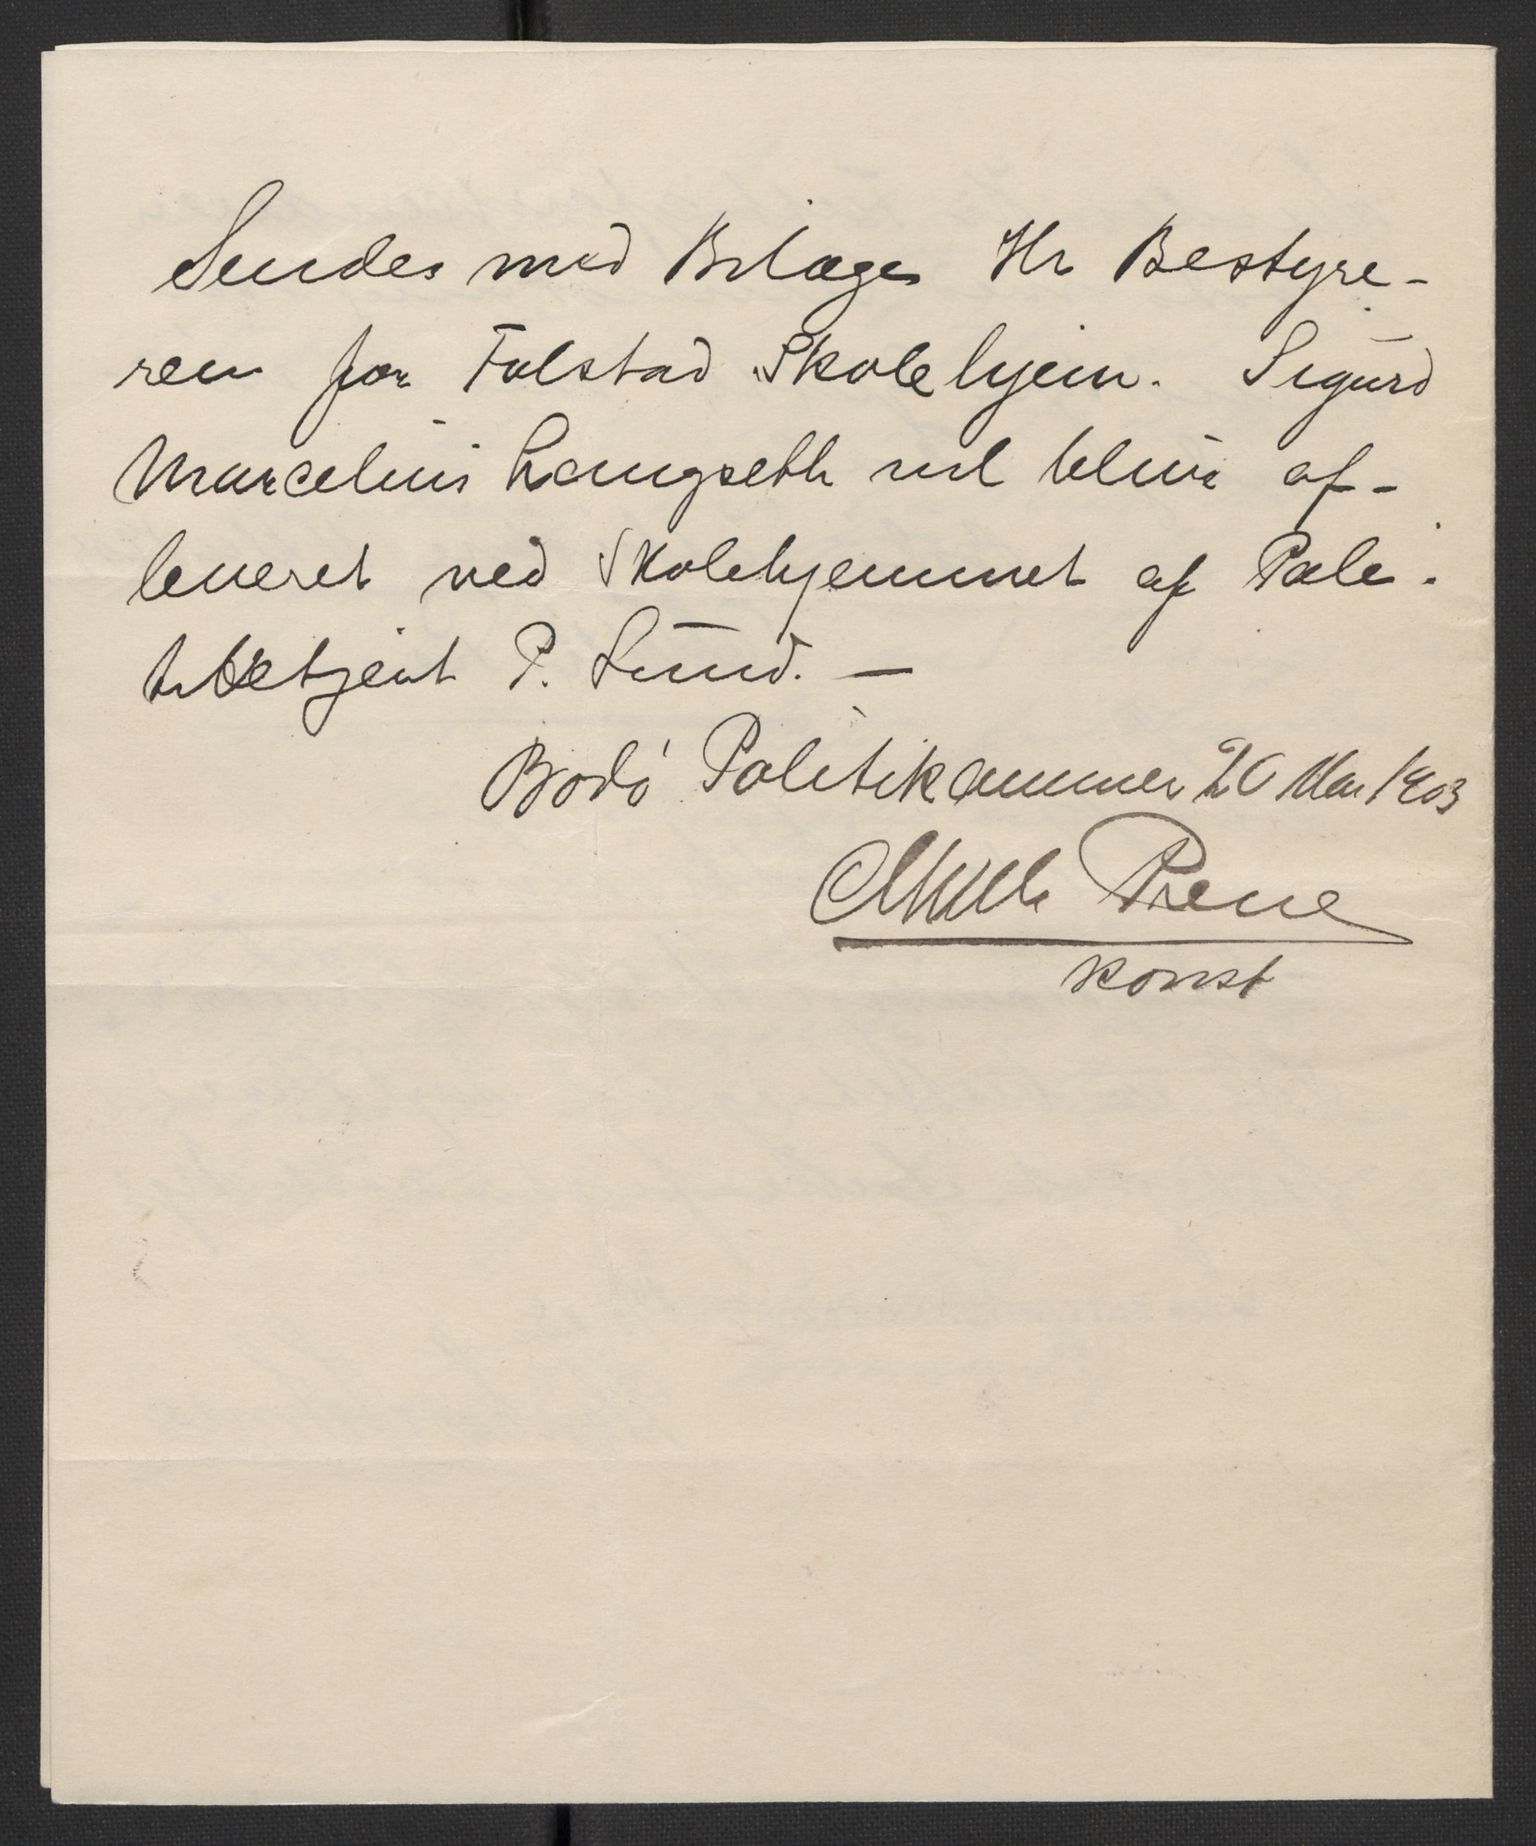 Sendes med Bilage Hr Bestyre-
ren for Falstad Skolehjem. Sigurd
Marcelius Langseth vil blive af-
leveret ved Skolehjemmet af Poli-
tibetjent P. Lund. —
Bodø Politikammer 20 Mai 1903
Prene
konst